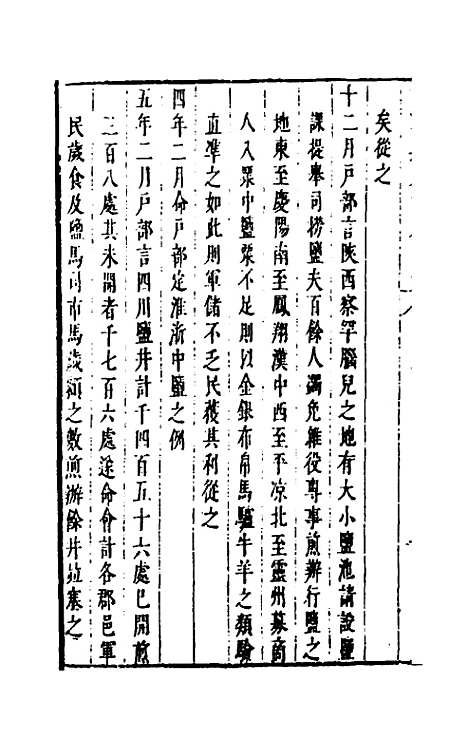 矣從之
十二月戶部言陝西察罕腦兒之地有大小鹽池請設鹽
課提舉司撈鹽夫百餘人蠲免雜役專事煎辦行鹽之
地東至慶陽南至鳳翔漢中西至平凉北至靈州募商
人入粟中鹽粟不足則以金銀布帛馬驢牛羊之類驗
直準之如此則軍儲不乏民獲其利從之
四年二月命戶部定淮浙中鹽之例
五年二月戶部言四川鹽井計千四百五十六處已開煎
三百八處其未開者千七百六處遂命會計各郡邑軍
民歲食及鹽馬司市馬歲額之數煎辦餘井竝塞之